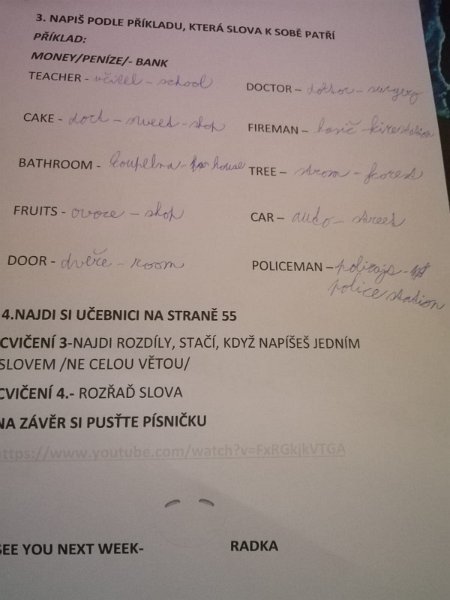 3. NAPIŠ PODLE PŘÍKLADU, KTERÁ SLOVA K SOBĚ PATŘÍ
PŘÍKLAD:
MONEY/PENÍZE/- BANK
TEACHER - učitel - school
DOCTOR – doktor - surgery
CAKE - dort - sweet - shop
FIREMAN – hasič - firestation
BATHROOM - koupelna - house
TREE – strom - forest
FRUITS - ovoce - shop
CAR – auto - street
DOOR - dveře - room
POLICEMAN – policajt -
police station
4.NAJDI SI UČEBNICI NA STRANĚ 55
CVIČENÍ 3-NAJDI ROZDÍLY, STAČÍ, KDYŽ NAPÍŠEŠ JEDNÍM
SLOVEM /NE CELOU VĚTOU/
CVIČENÍ 4.- ROZŘAĎ SLOVA
NA ZÁVĚR SI PUSŤTE PÍSNIČKU
https://www.youtube.com/watch?v=FxRGkjkVTGA
SEE YOU NEXT WEEK- RADKA